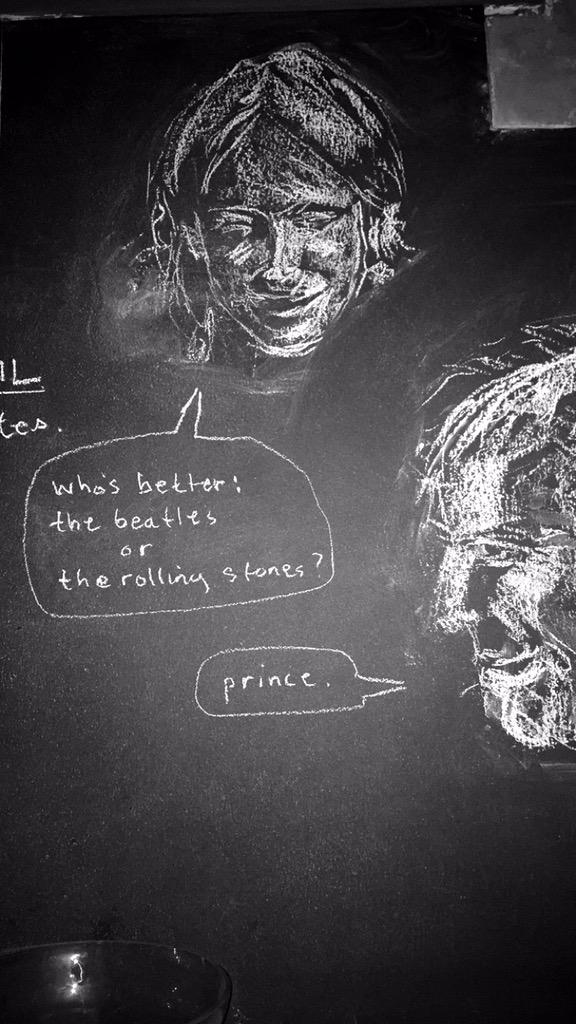 who's better:
the beatles
or
the rolling stones?
prince.